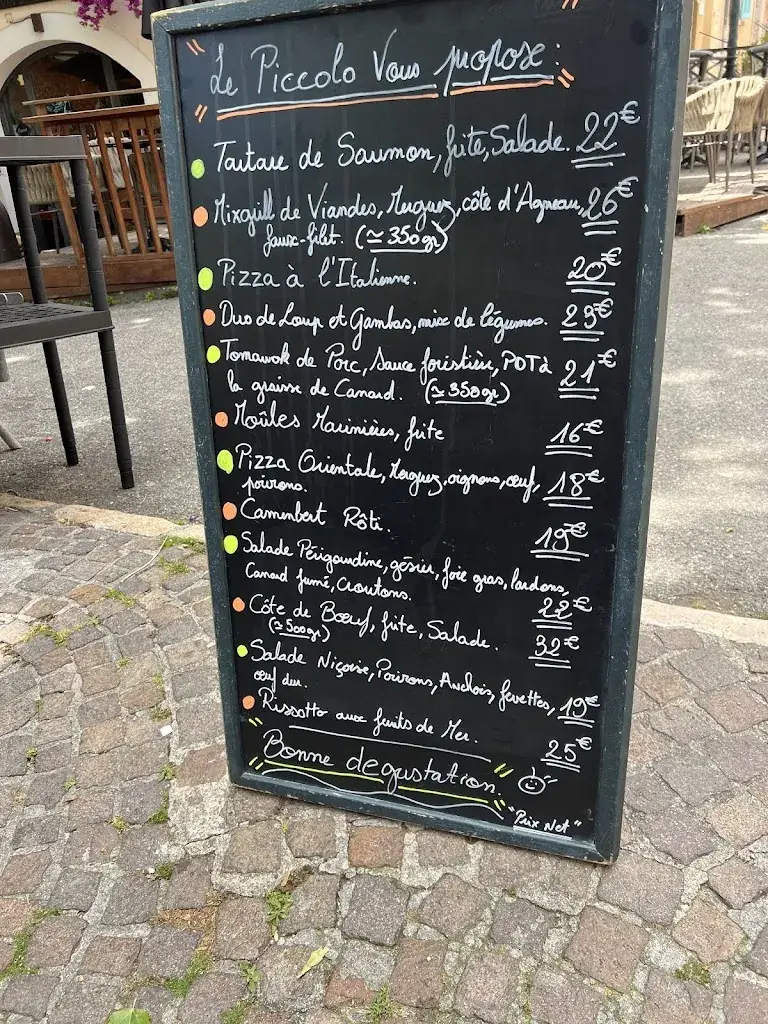 Le Piccolo Vous propose :
Tartare de Saumon, frite, Salade. 22€
Mixgrill de Viandes, Merguez, côte d'Agneau, 26€
faux-filet. (≃ 350gr)
Pizza à l'Italienne. 20€
Duo de Loup et Gambas, mix de légumes. 23€
Tomawok de Porc, sauce foristière, POT à 21€
la graisse de Canard. (≃ 350gr)
Moûles Marinières, frite 16€
Pizza Orientale, Merguez, oignons, œuf, 18€
poivrons.
Camenbert Rôti. 19€
Salade Périgourdine, gésier, foie gras, lardons,
Canard fumé, Croutons. 22€
Côte de Bœuf, frite, Salade. 32€
(≃ 500gr)
Salade Niçoise, Poivrons, Anchois, fevettes, 19€
œuf dur.
Rissotto aux fruits de Mer. 25€
Bonne degustation.
"Prix Net"